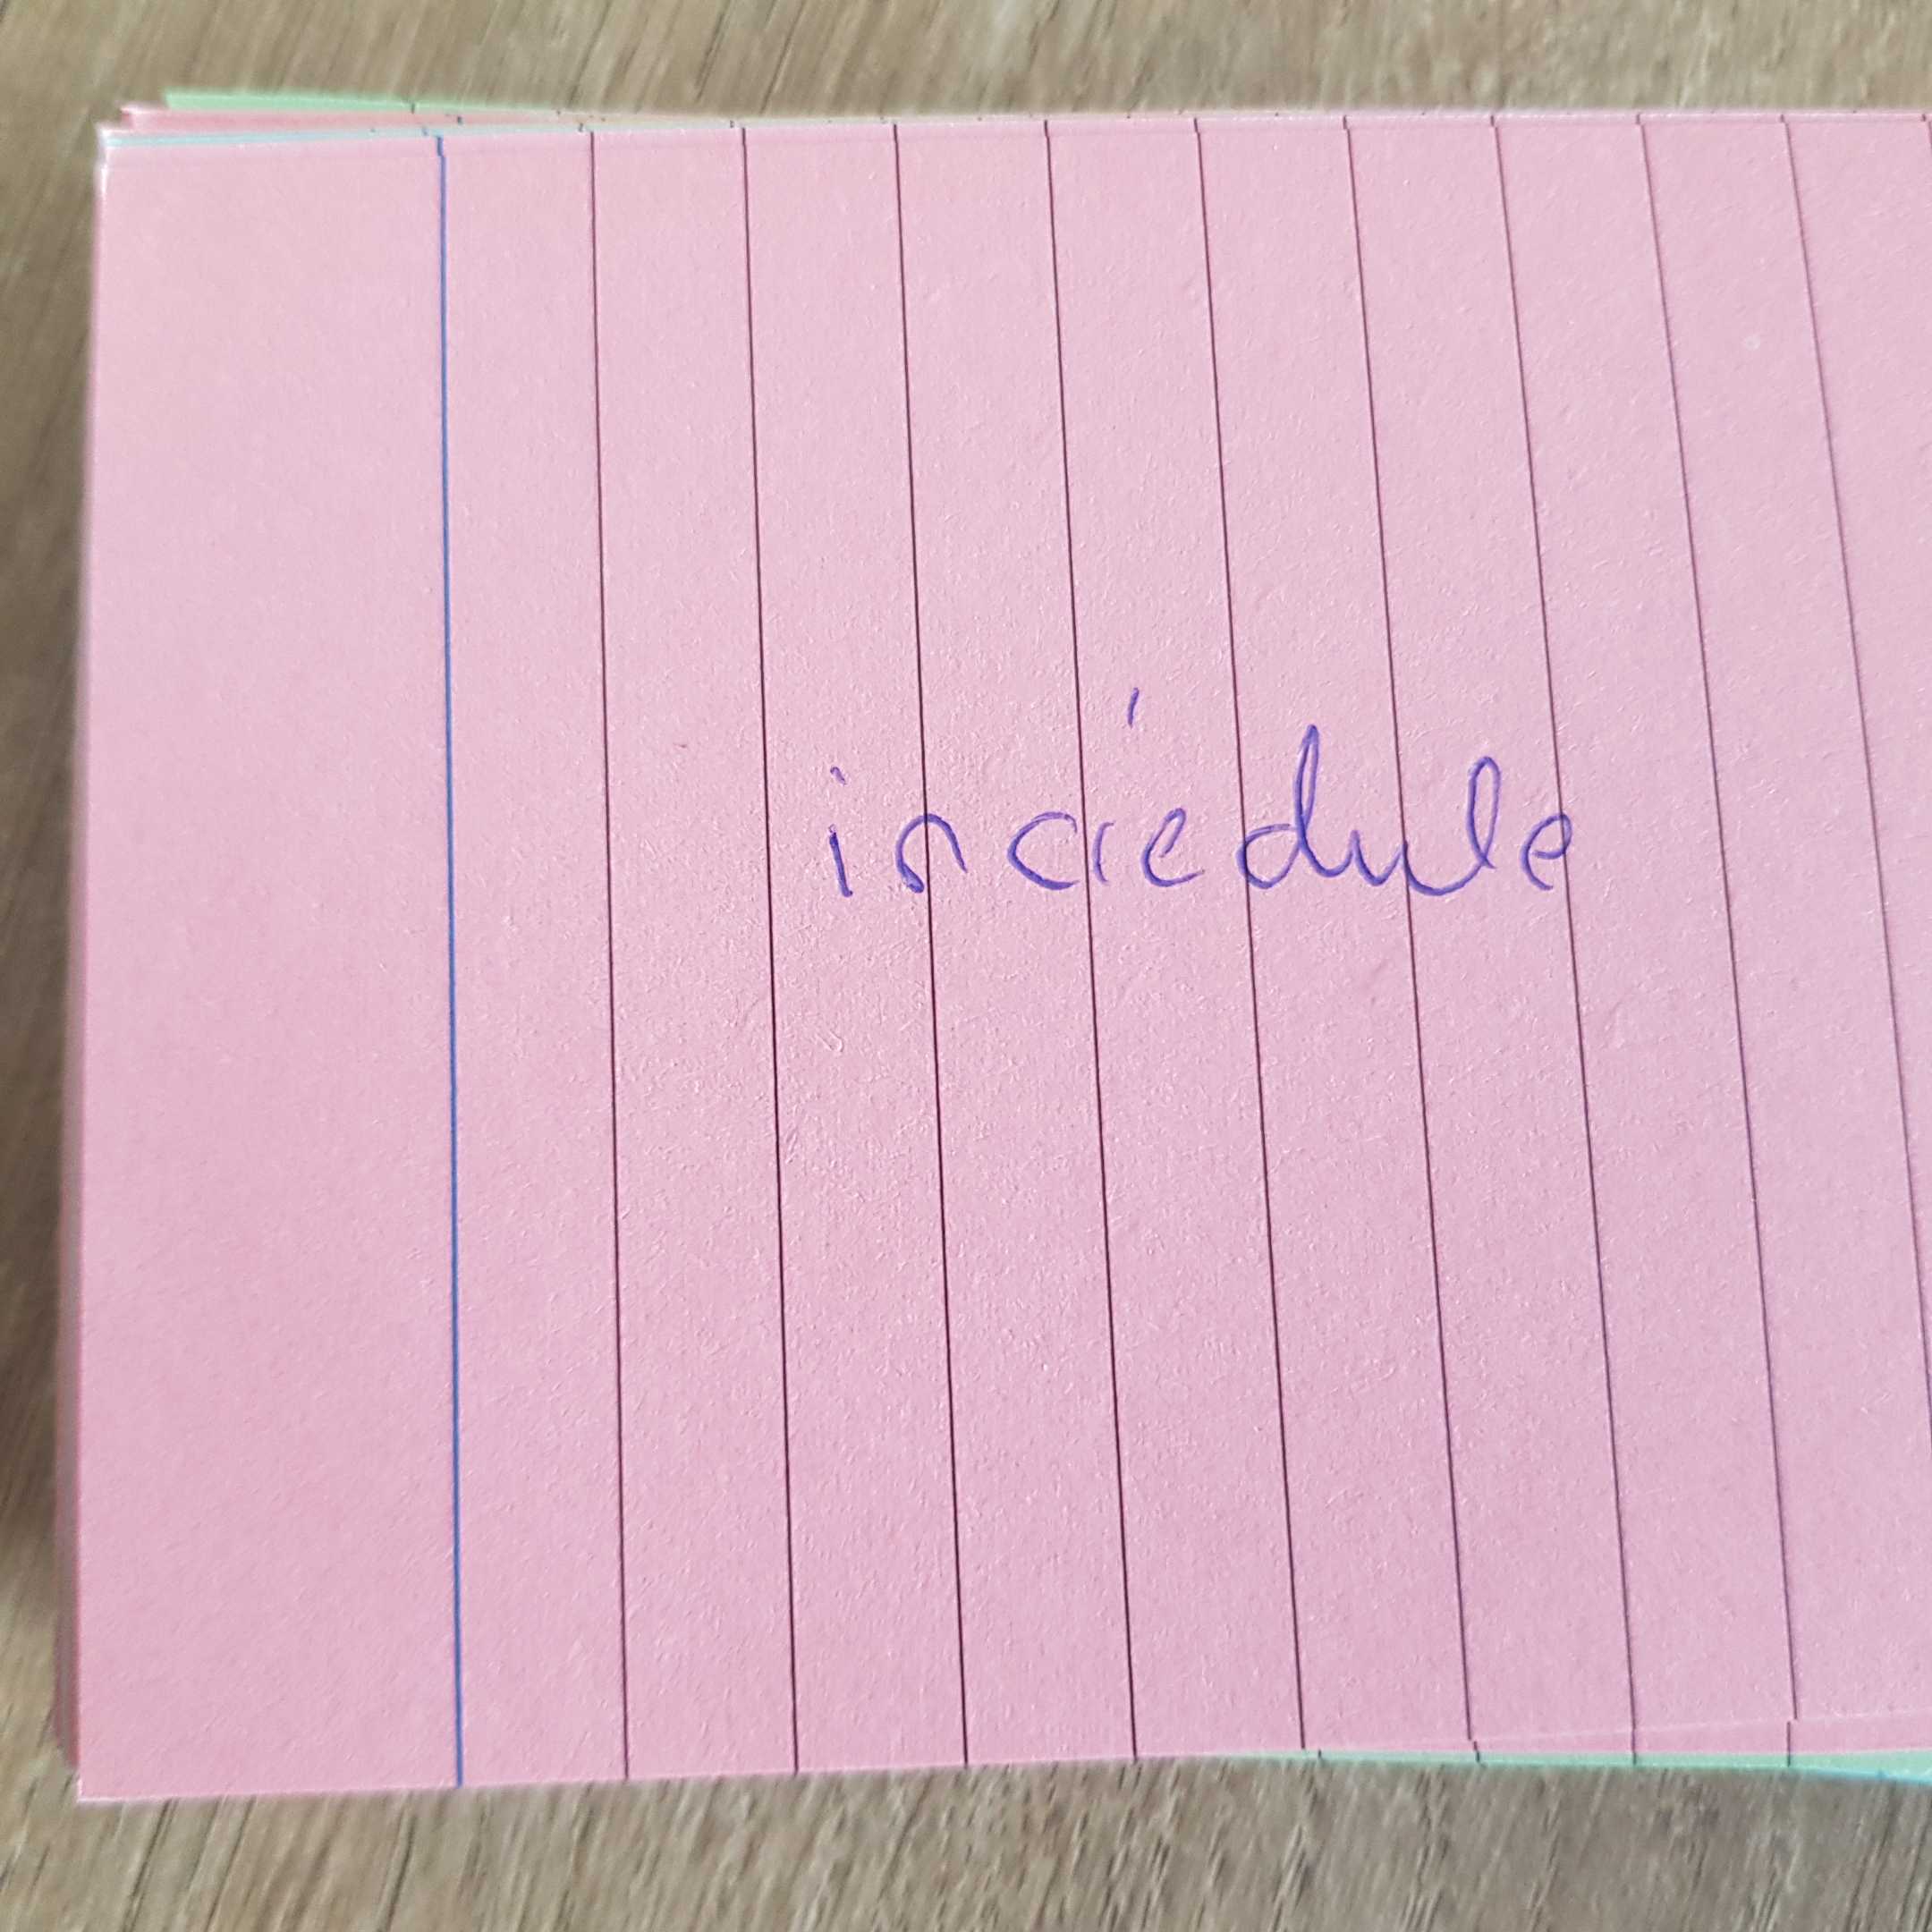 incrédule